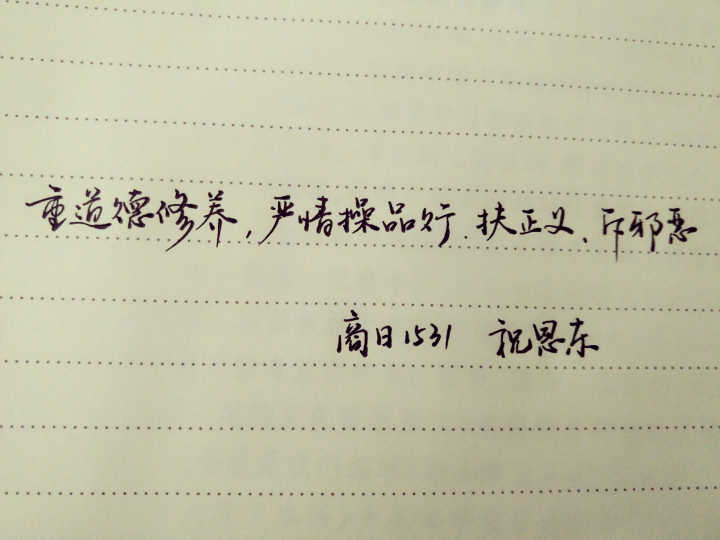 重道德修养,严情操品行.扶正义、斥邪恶
商日1531 祝恩东